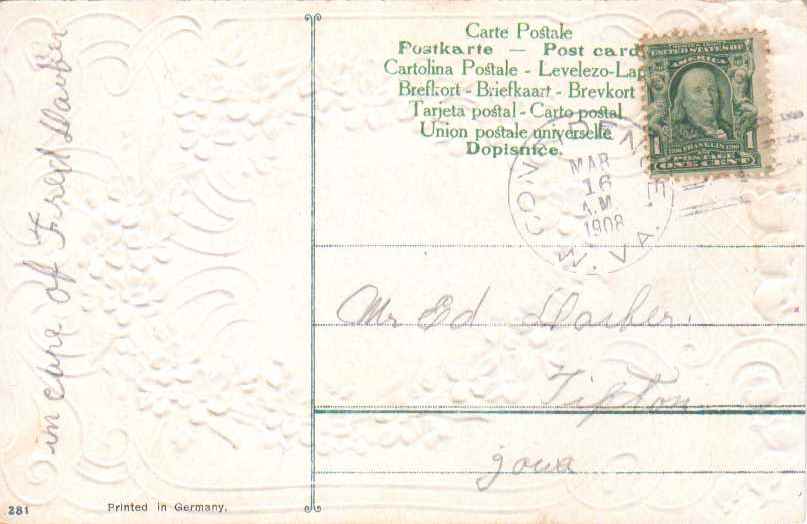 in care of Fred
Carte Postale
Postkarte — Post card
Cartolina Postale - Levelezo-Lap
Brefkort - Briefkaart - Brevkort
Tarjeta postal - Carto postal
Union postale universelle
Dopisnice.
UNITED STATES OF
AMERICA
1 1
FRANKLIN
POSTAGE
ONE CENT
MAR
16
A.M.
1908
W. VA.
Mr Ed
Tipton
Iowa
281
Printed in Germany.